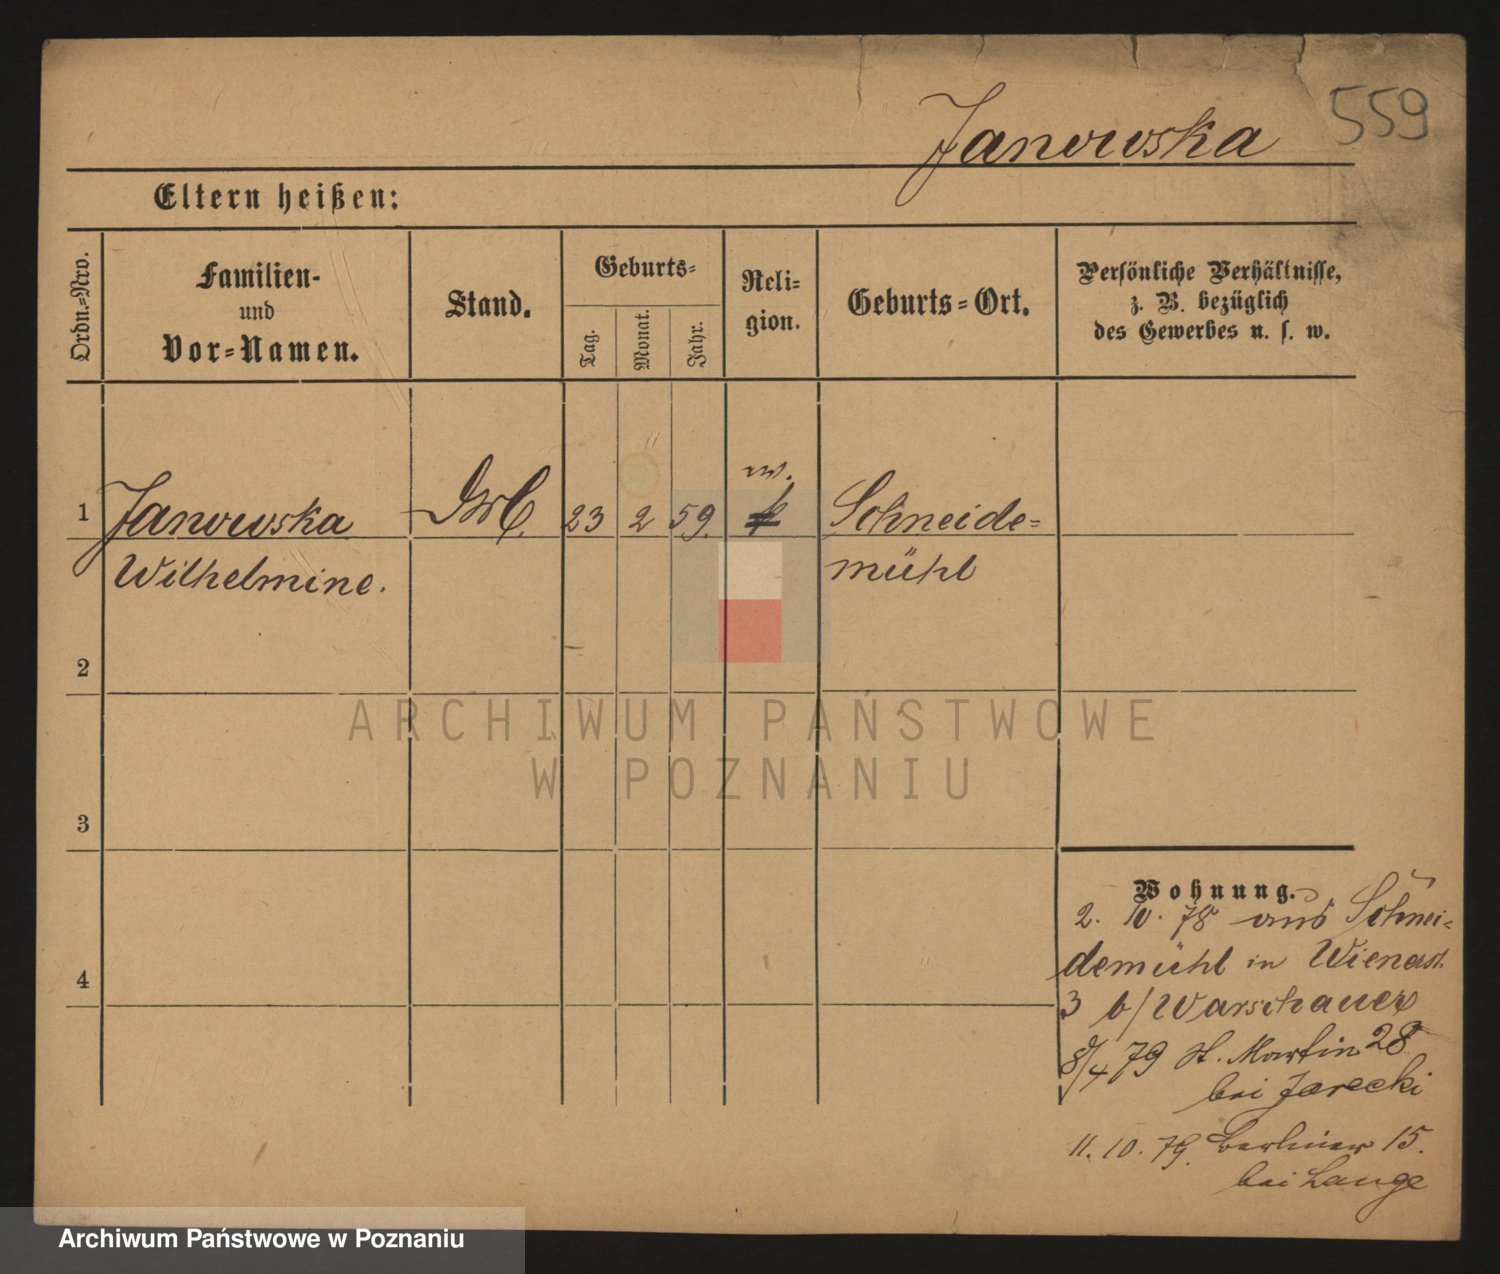 559
Janowska
Eltern heißen:
Ordn.-Nro.
Familien-
und
Vor-Namen.
Stand.
Geburts-
Tag.
Monat.
Jahr.
Reli-
gion.
Geburts-Ort.
Persönliche Verhältnisse,
z. B. bezüglich
des Gewerbes u. s. w.
1 Janowska 23 2 59. Schneide-
Wilhelmine. mühl
2
3
4
Wohnung.
2. 10. 78 aus Schnei-
demühl in Wienerst.
3 b/ Warschauer
8/4 79 St. Martin 28
bei Jarecki
11. 10. 79. Berliner 15.
bei Lange
ARCHIWUM PAŃSTWOWE
W POZNANIU
Archiwum Państwowe w Poznaniu